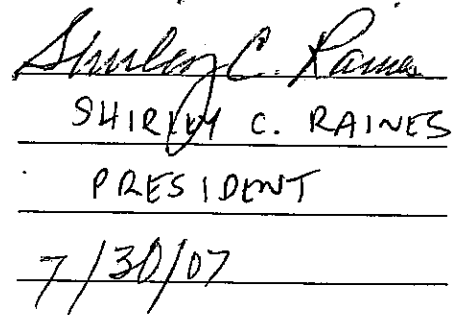 Shirley C. Raines
SHIRLEY C. RAINES
PRESIDENT
7/30/07